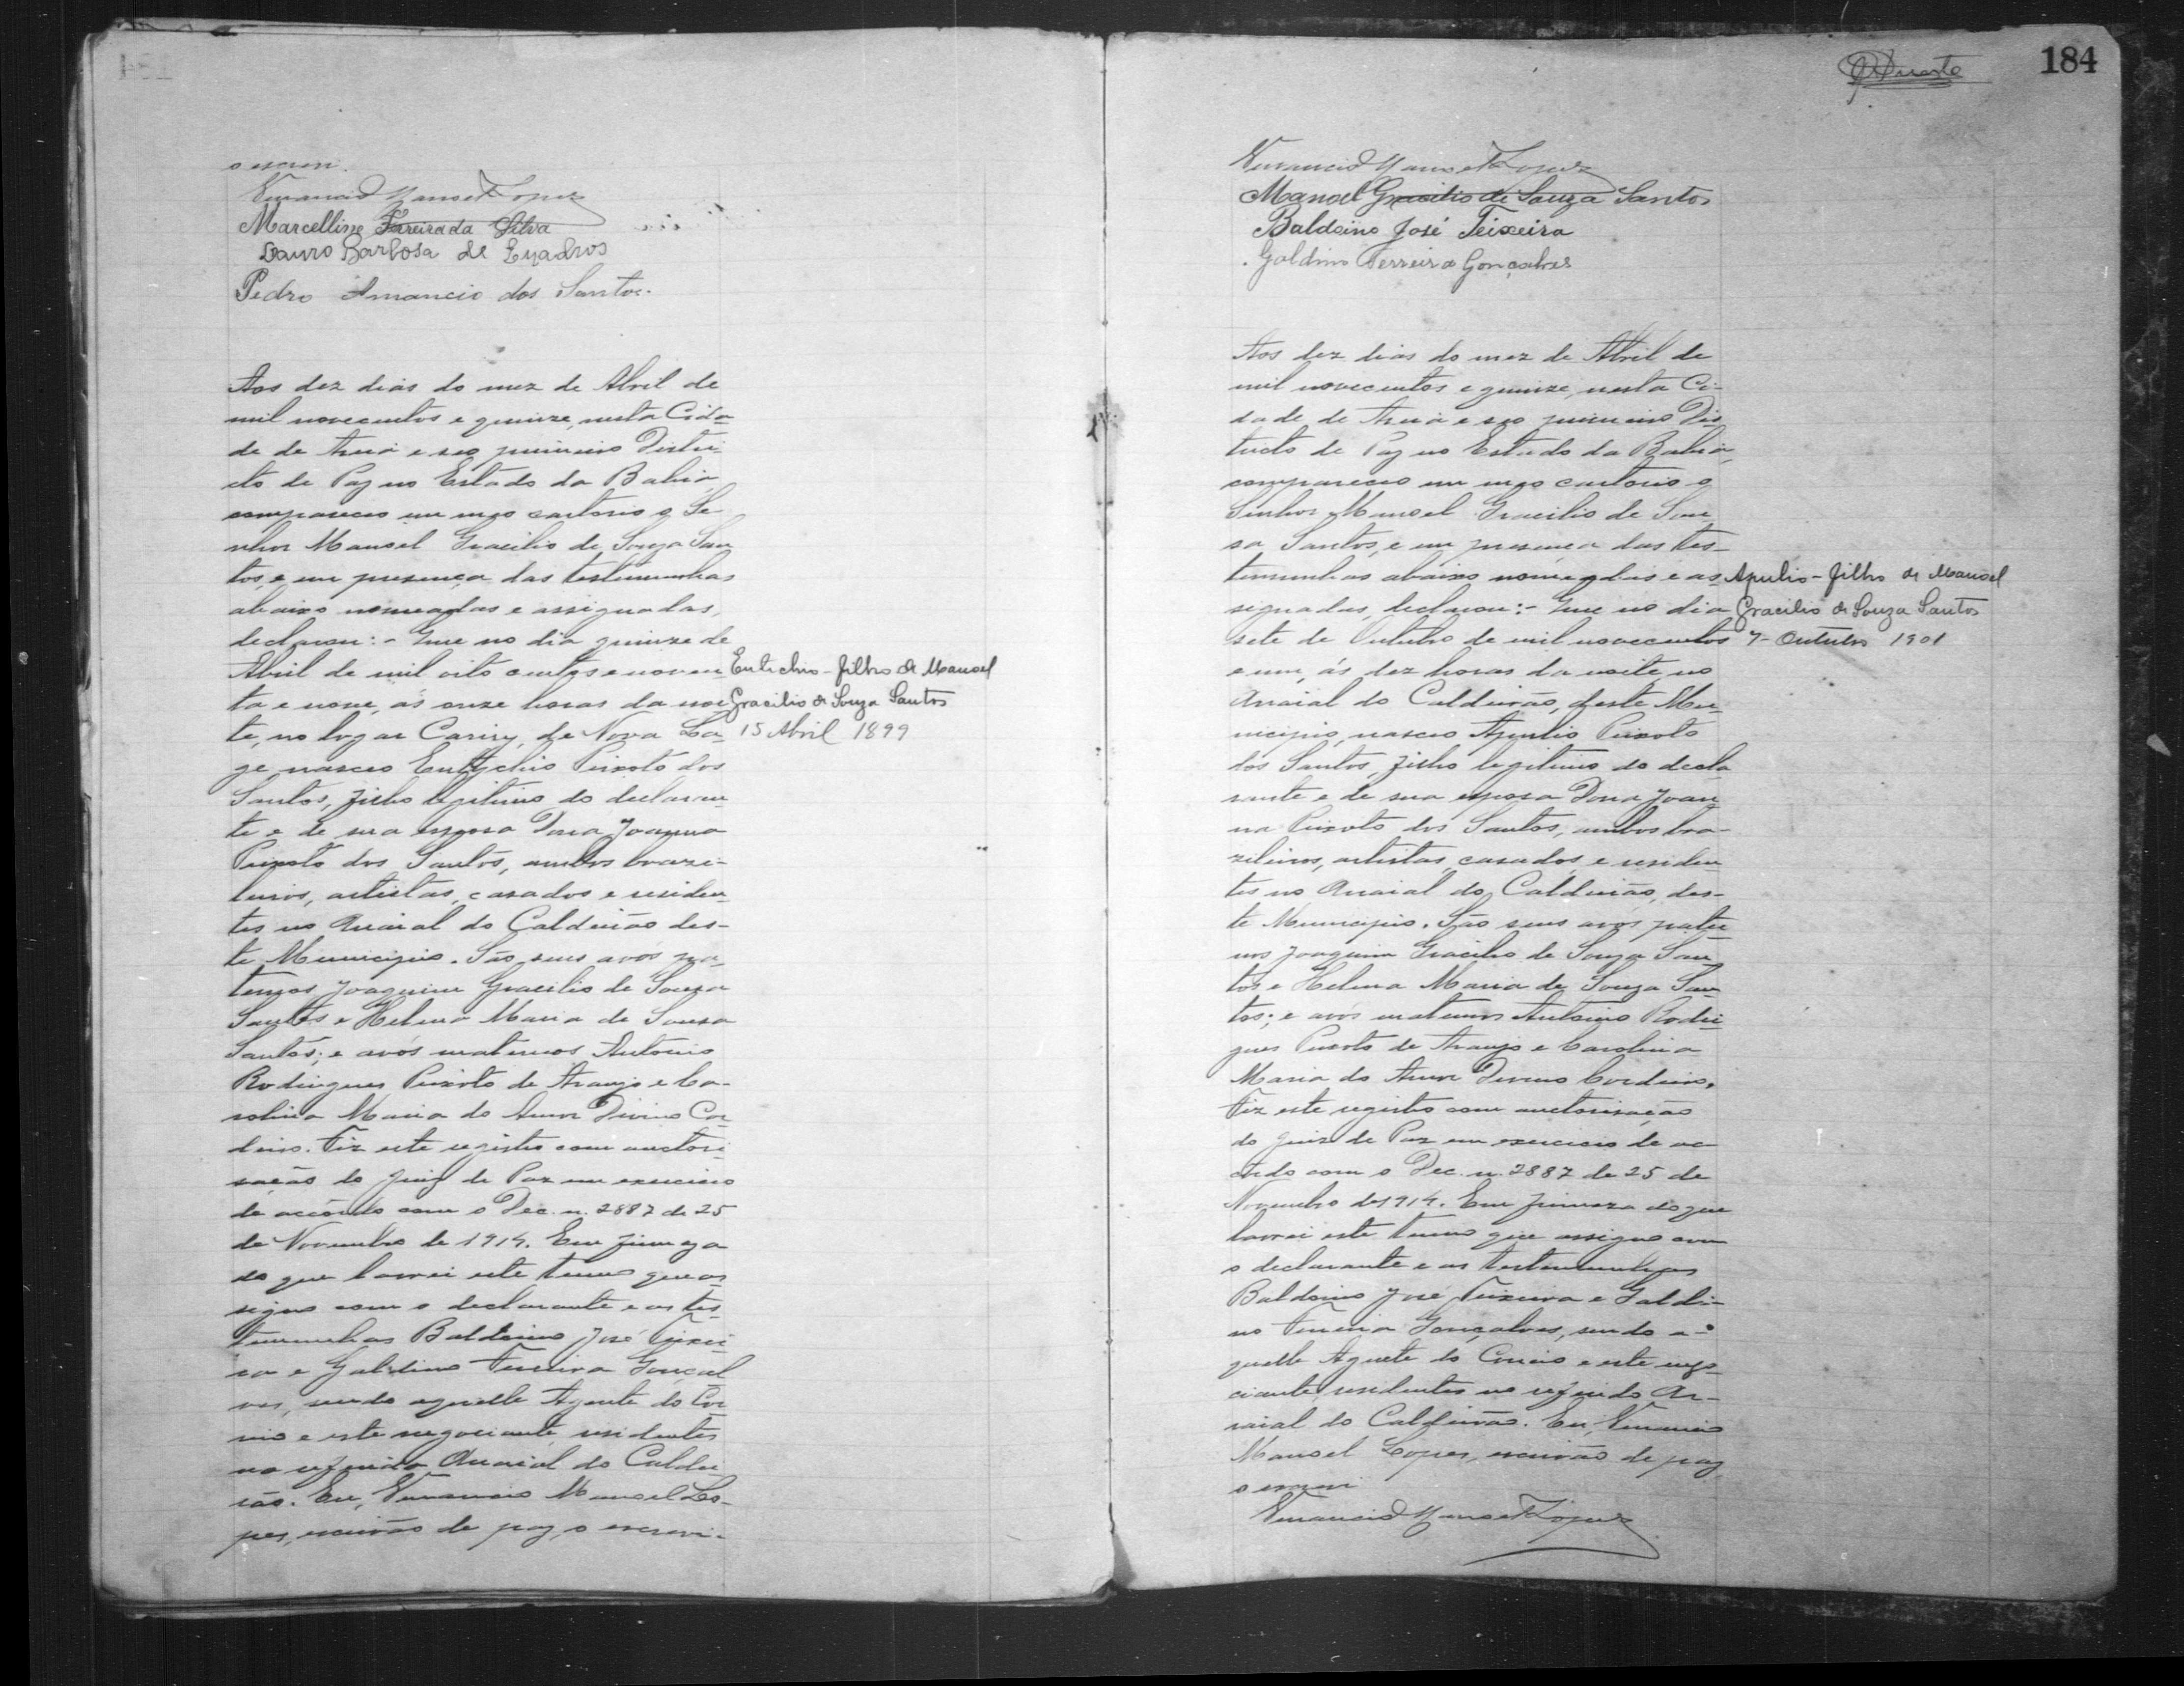 o escrevi.
Venancio Manoel Lopes
Marcellino Ferreira da Silva
Lauro Barbosa de Quadros
Pedro Amancio dos Santos.
Aos dez dias do mez de Abril de
mil novecentos e quinze, nesta Cida-
de de Areia e seo primeiro Distri-
cto de Paz no Estado da Bahia,
compareceo em meo cartorio o Se-
nhor Manoel Gracilio de Souza San-
tos, e em presença das testemunhas
abaixo nomeadas e assignadas,
declarou: - Que no dia quinze de
Abril de mil oito centos e noven-
ta e nove, ás onze horas da noi-
te, no logar Cariry, de Nova La-
ge nasceo Eutychio Peixoto dos
Santos, filho legitimo do declaran-
te e de sua esposa Dona Joanna
Peixoto dos Santos, ambos brazi-
leiros, artistas, casados e residen-
tes no Arraial do Caldeirão des-
te Municipio. São seus avós pa-
ternos Joaquim Gracilio de Souza
Santos e Helena Maria de Souza
Santos; e avós maternos Antonio
Rodrigues Peixoto de Araujo e Ca-
rolina Maria do Amor Divino Cor-
deiro. Fiz este registro com auctori-
sação do Juiz de Paz em exercicio
de accôrdo com o Dec. n. 2887 de 25
de Novembro de 1914. Em firmeza
do que lavrei este termo que as-
signo com o declarante e as tes-
temunhas Baldoino José Teixei-
ra e Galdino Ferreira Gonçal-
ves, sendo aquelle Agente do Cor-
reio e este negociante, residentes
no referido Arraial do Caldei-
rão. Eu, Venancio Manoel Lo-
pes, escrivão de paz, o escrevi.
Eutichio - filho de Manoel
Gracilio de Souza Santos
15 Abril 1899
184
Venancio Manoel Lopes
Manoel Gracilio de Souza Santos
Baldoino José Teixeira
Galdino Ferreira Gonçalves
Aos dez dias do mez de Abril de
mil novecentos e quinze, nesta Ci-
dade de Areia e seo primeiro Dis-
tricto de Paz no Estado da Bahia,
compareceo em meo cartorio o
Senhor Manoel Gracilio de Sou-
sa Santos, e em presença das tes-
temunhas abaixo nomeadas e as-
signadas, declarou: - Que no dia
sete de Outubro de mil novecentos
e um, ás dez horas da noite, no
Arraial do Caldeirão, deste Mu-
nicipio, nasceo Apulio Peixoto
dos Santos, filho legitimo do decla-
rante e de sua esposa Dona Joan-
na Peixoto dos Santos, ambos bra-
zileiros, artistas, casados, e residen-
tes no Arraial do Caldeirão, des-
te Municipio. São seus avós pater-
nos Joaquim Gracilio de Souza San-
tos e Helena Maria de Souza San-
tos; e avós maternos Antonio Rodri-
gues Peixoto de Araujo e Carolina
Maria do Amor Divino Cordeiro.
Fiz este registro com auctorisação
do Juiz de Paz em exercicio de ac-
côrdo com o Dec. n. 2887 de 25 de
Novembro de 1914. Em firmeza do que
lavrei este termo que assigno com
o declarante e as testemunhas
Baldoino José Teixeira e Galdi-
no Ferreira Gonçalves, sendo a-
quelle Agente do Correio e este nego-
ciante, residentes no referido Ar-
raial do Caldeirão. Eu, Venancio
Manoel Lopes, escrivão de paz,
o escrevi
Venancio Manoel Lopes
Apulio - filho de Manoel
Gracilio de Souza Santos
7 - Outubro 1901